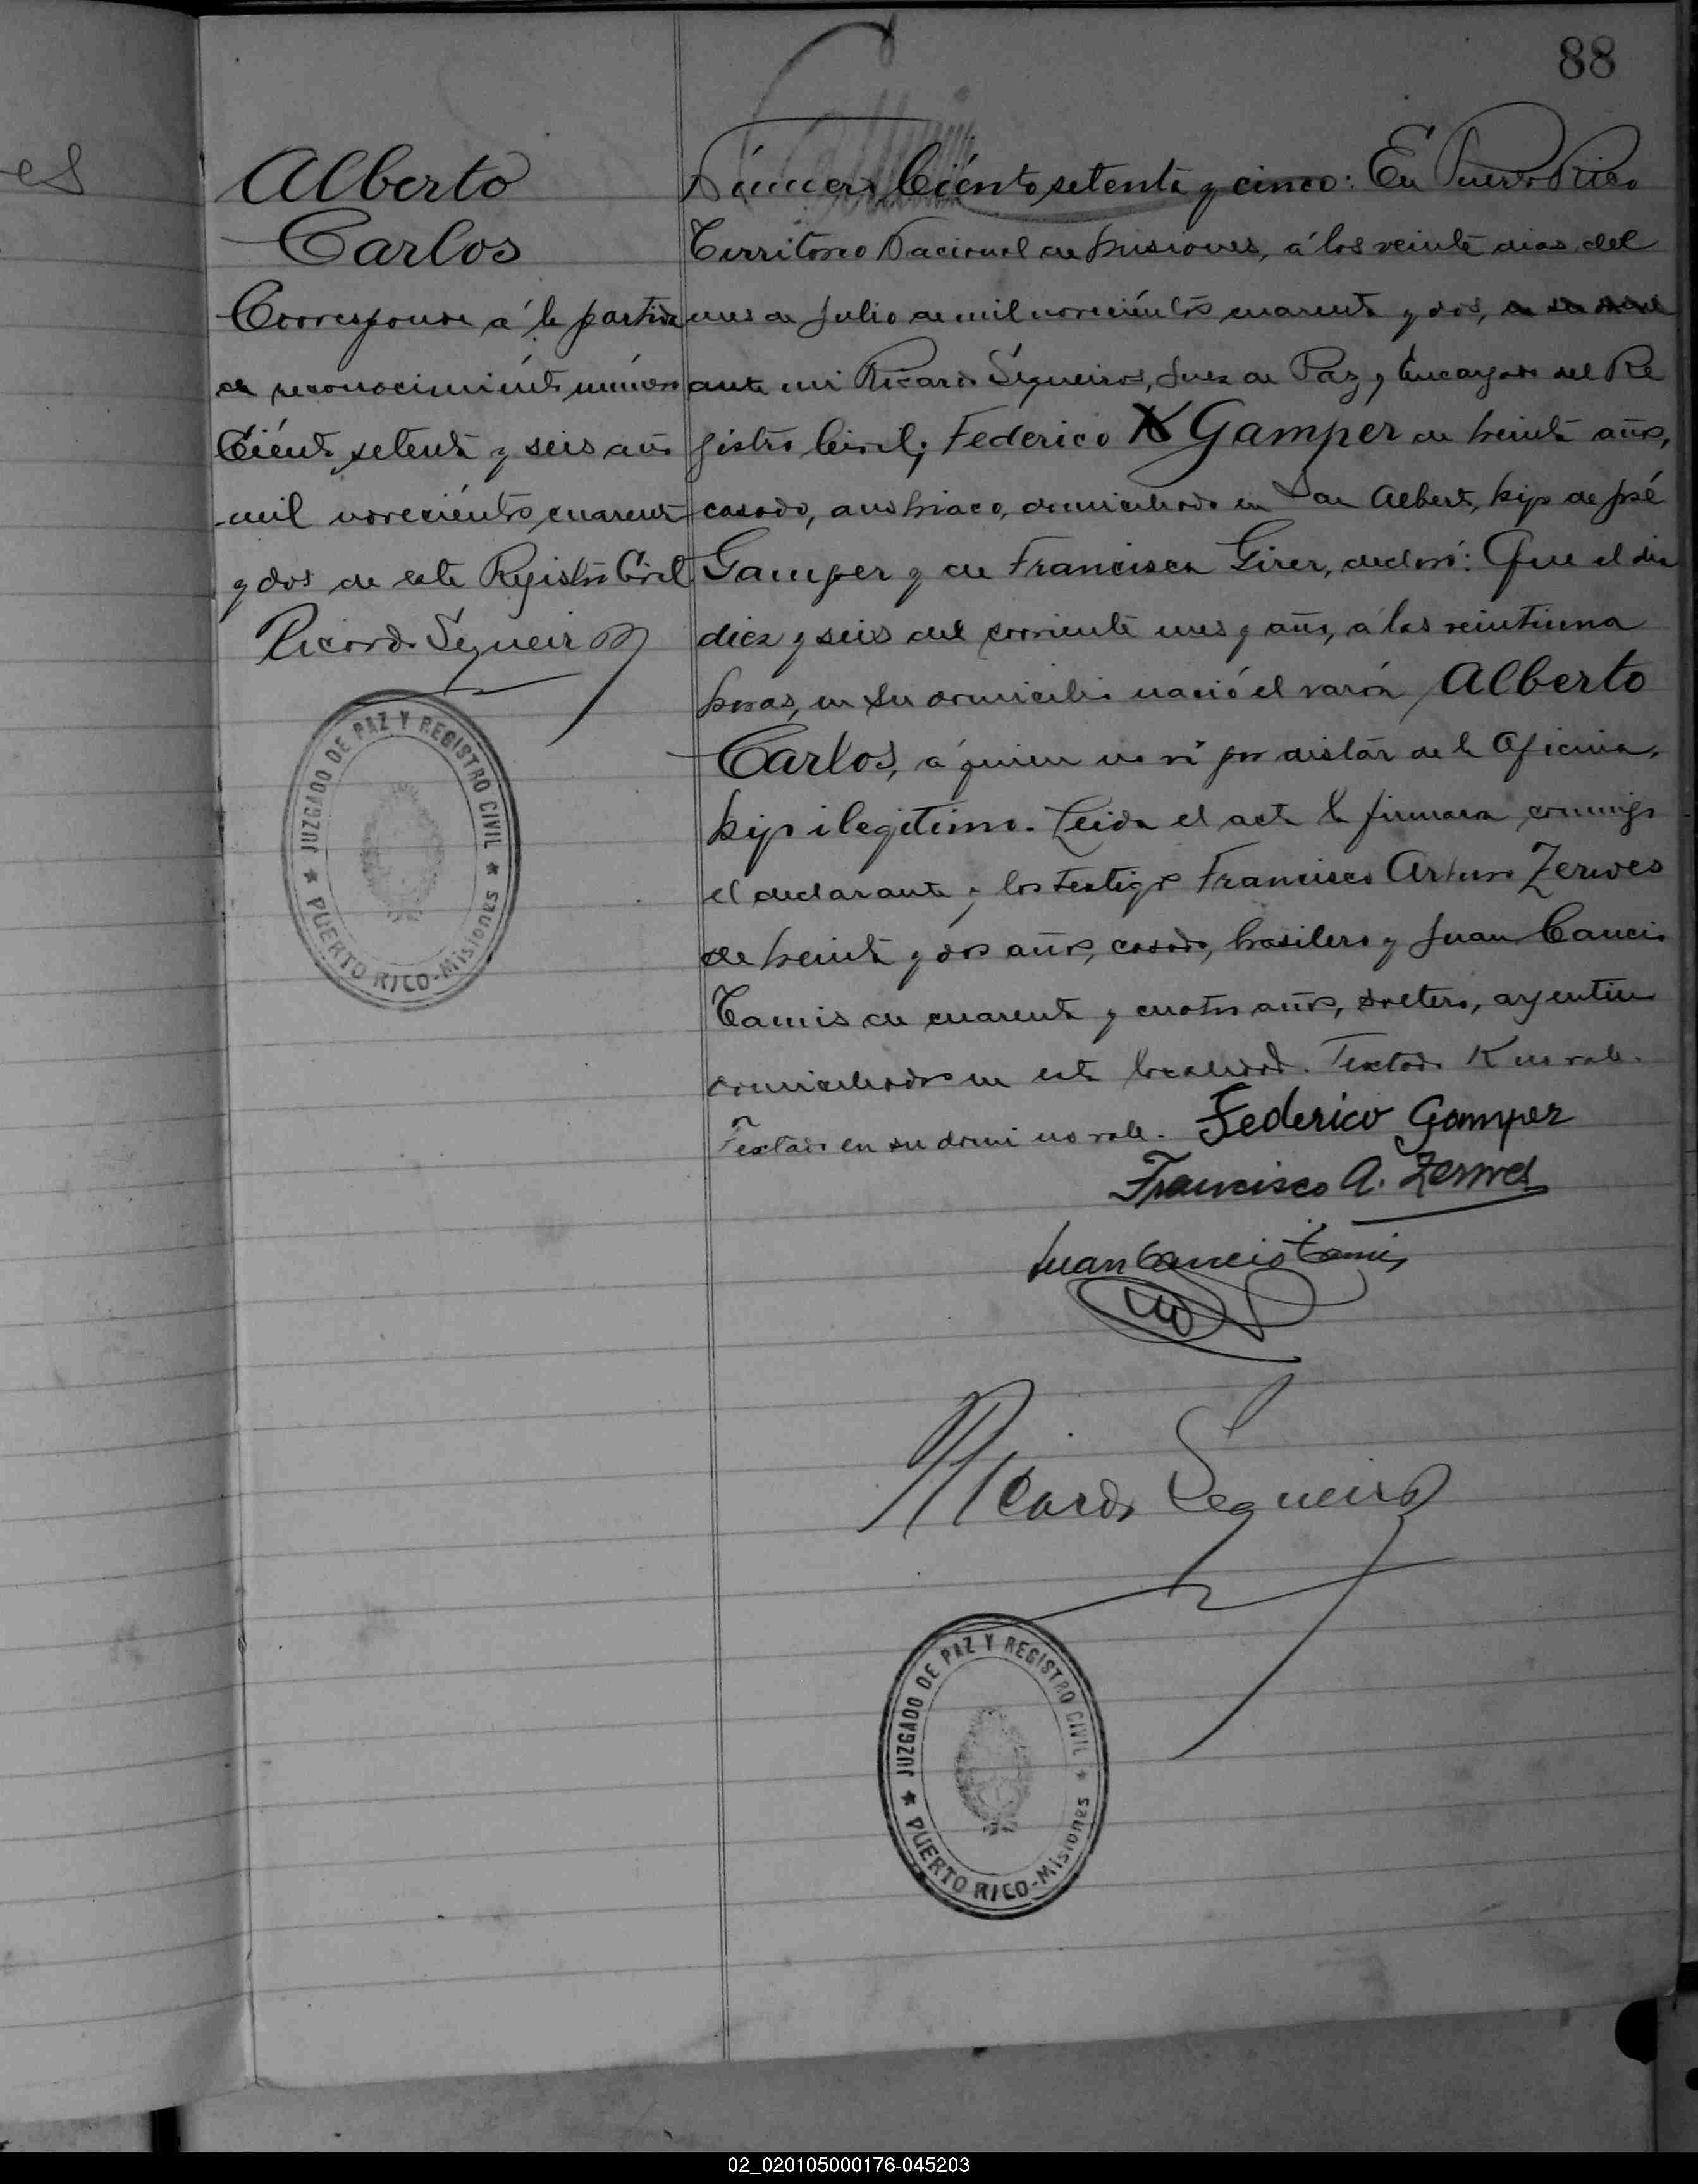 88
es
Alberto
Carlos
Corresponde á la partida
de reconocimiento número
Ciento setenta y seis año
mil novecientos cuarenta
y dos de este Registro Civil
Ricardo Sequeiros
JUZGADO DE PAZ Y REGISTRO CIVIL
★ PUERTO RICO-Misiones ★
Número Ciento setenta y cinco: En Puerto Rico
Territorio Nacional de Misiones, á los veinte dias del
mes de Julio de mil novecientos cuarenta y dos,
ante mi Ricardo Sequeiros, Juez de Paz y Encargado del Re
gistro Civil; Federico K Gamper de treinta años,
casado, austriaco, domiciliado en San Alberto, hijo de José
Gamper y de Francisca Girer, declaró: Que el dia
diez y seis del corriente mes y año, a las veintiuna
horas, en su domicilio nació el varón Alberto
Carlos, á quien no ví por distar de la Oficina,
hijo ilegitimo. Leida el acta la firmara conmigo
el declarante y los testigos Francisco Arturo Zerwes
de treinta y dos años, casado, brasilero y Juan Cancio
Tamis de cuarenta y cuatro años, soltero, argentino
domiciliados en esta localidad. Textado K no vale.
Textado en su domi no vale. Federico Gamper
Francisco A. Zerwes
Juan Cancio Tamis
Ricardo Sequeiros
JUZGADO DE PAZ Y REGISTRO CIVIL
★ PUERTO RICO-Misiones ★
02_020105000176-045203